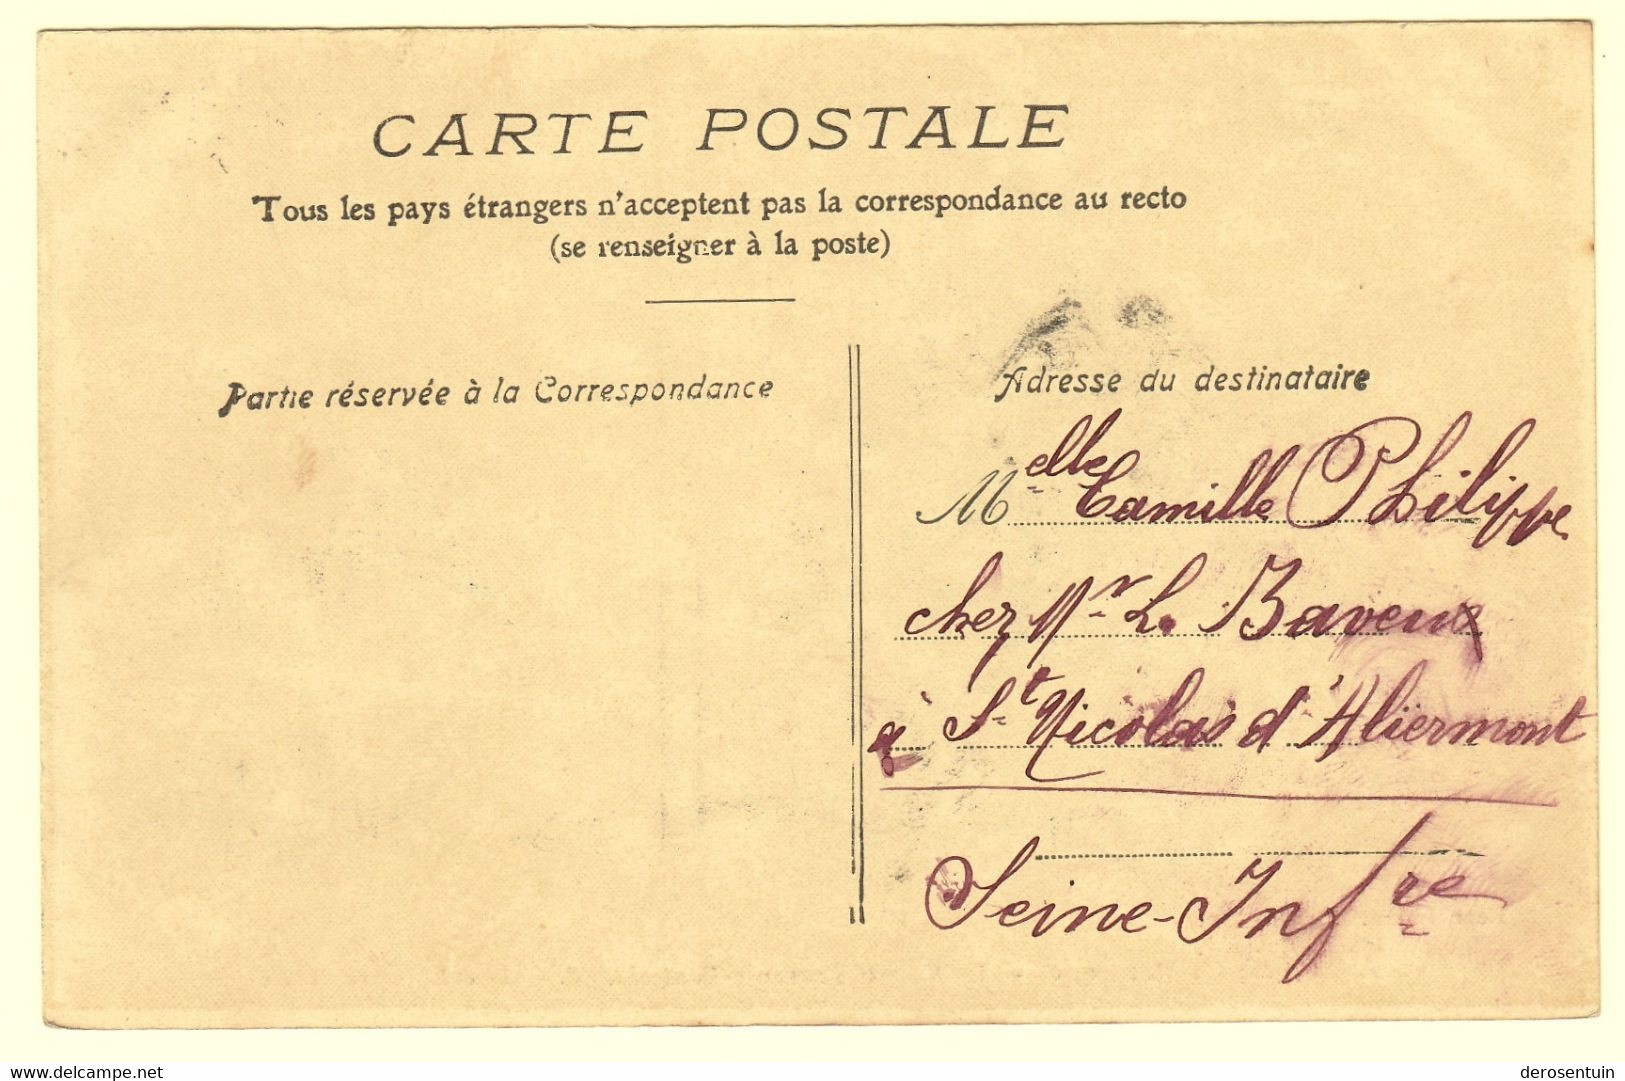 CARTE POSTALE
Tous les pays étrangers n'acceptent pas la correspondance au recto
(se renseigner à la poste)
Partie réservée à la Correspondance
Adresse du destinataire
Melle Camille Philippe
chez Mr L. Baveux
à St Nicolas d'Aliermont
Seine-Infre
www.delcampe.net
derosentuin